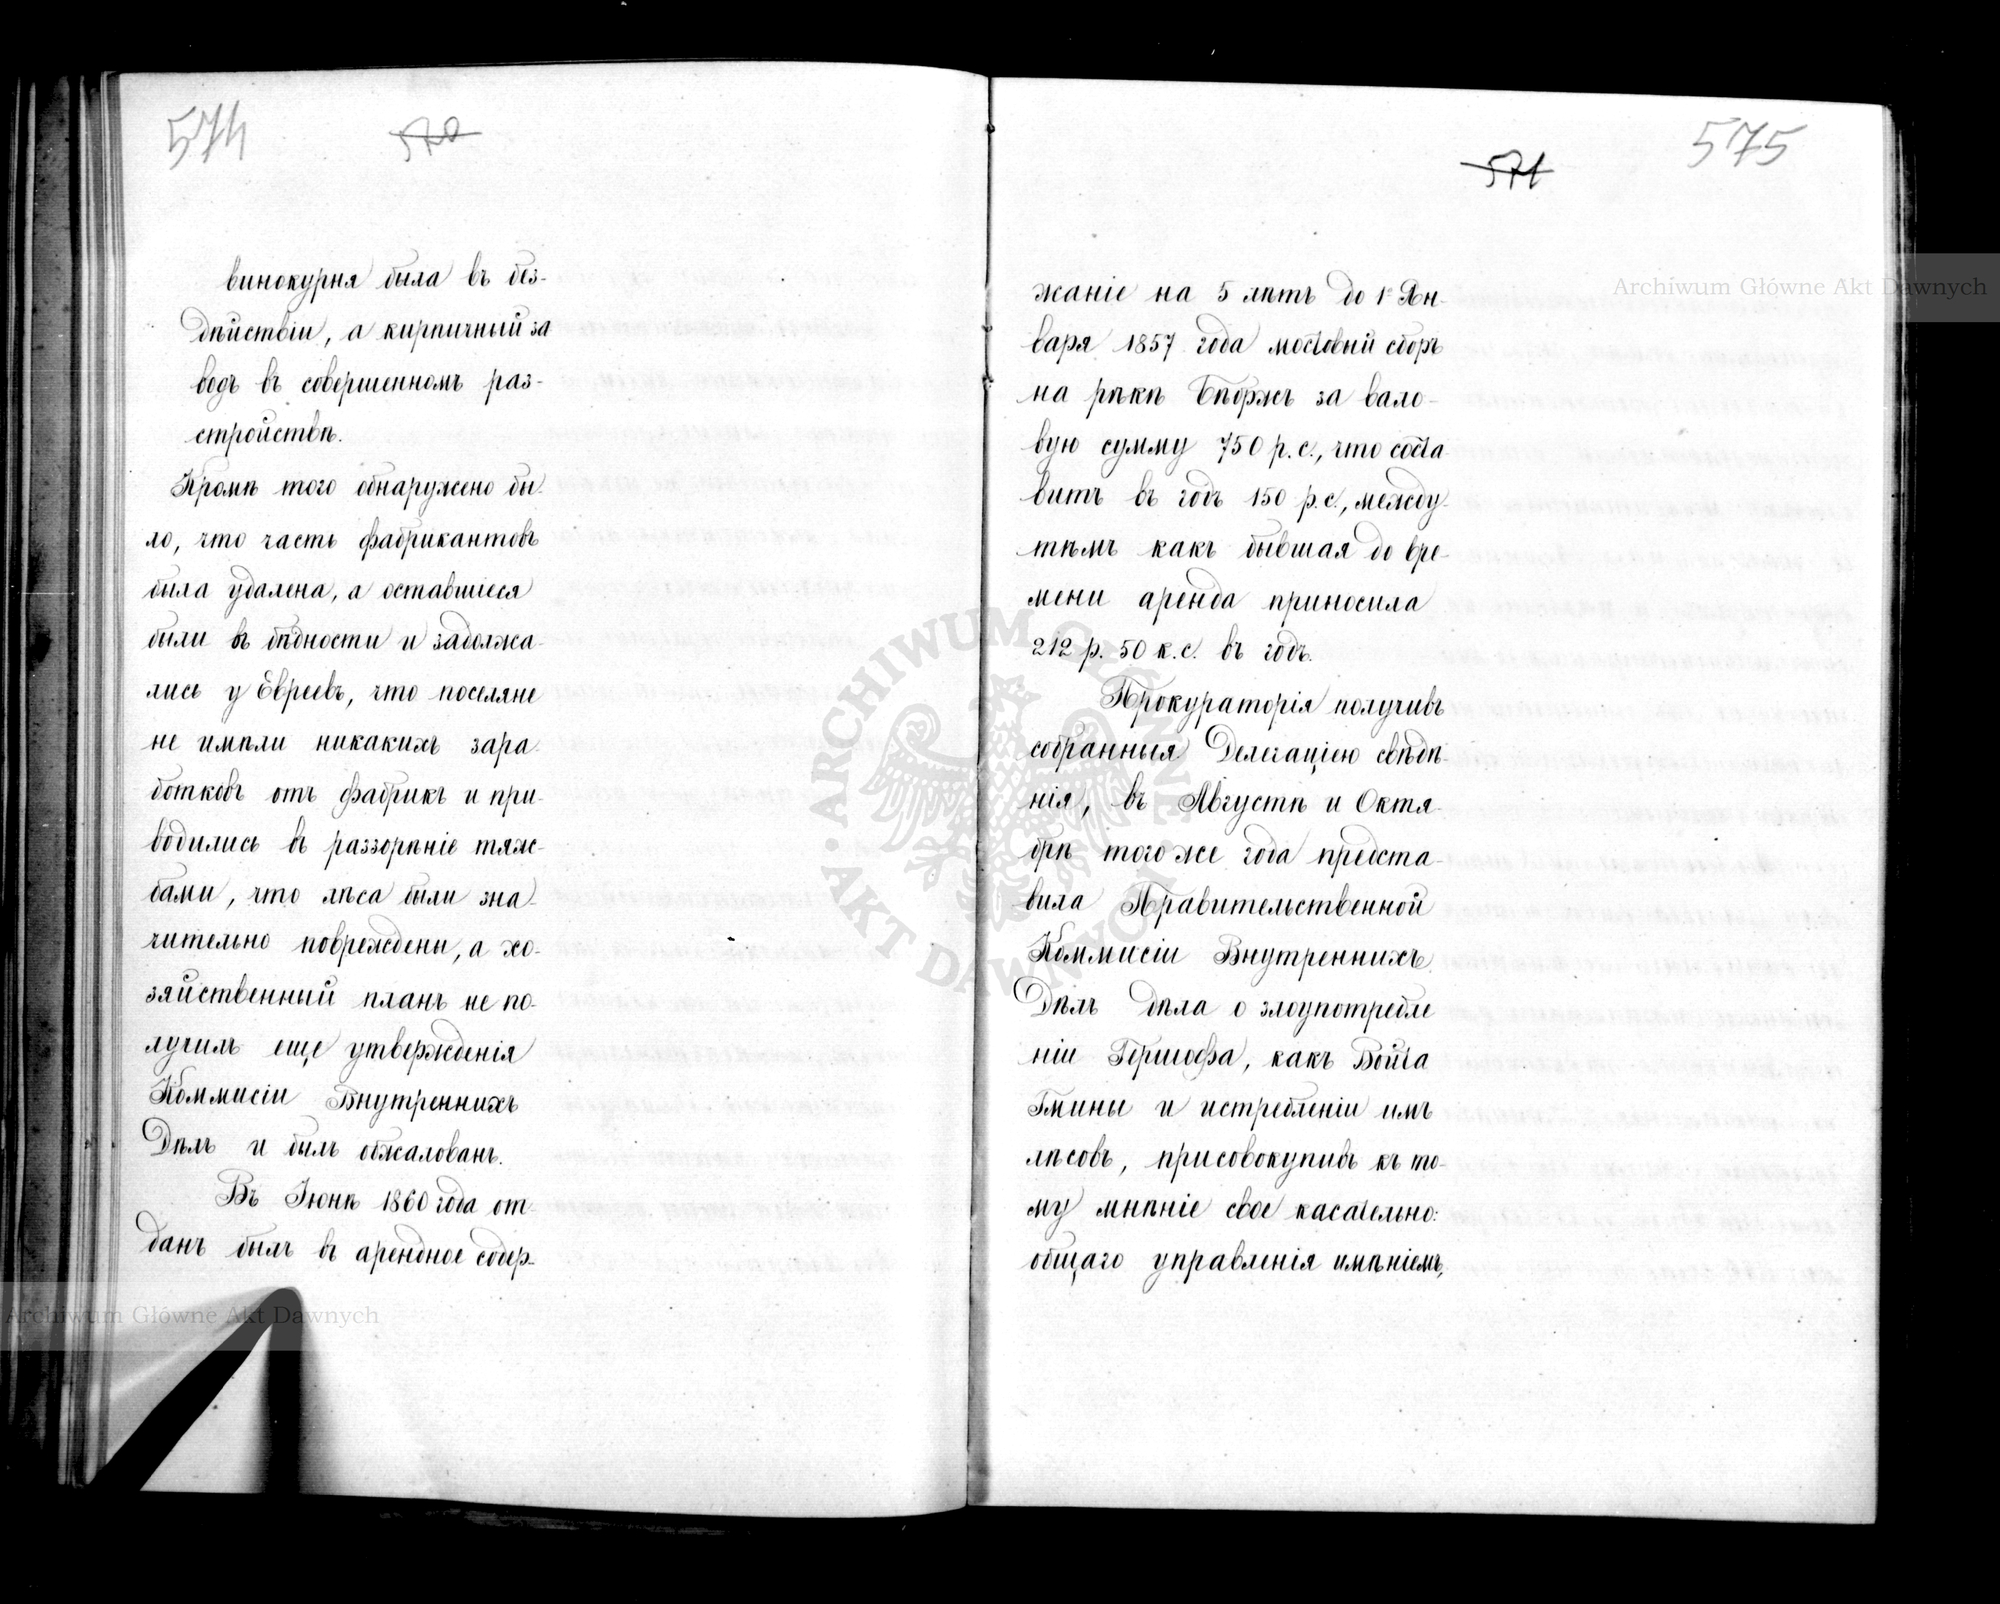 574
570
винокурня была въ без-
дѣйствіи, а кирпичный за
водъ въ совершенномъ раз-
стройствѣ.
Кромѣ того обнаружено бы-
ло, что часть фабрикантовъ
была удалена, а оставшіеся
были въ бѣдности и задолжа-
лись у Евреевъ, что поселяне
не имѣли никакихъ зара-
ботковъ отъ фабрикъ и при-
водились въ раззорѣніе тяж-
бами, что лѣса были зна-
чительно повреждены, а хо-
зяйственный планъ не по-
лучилъ еще утвержденія
Коммисіи Внутреннихъ
Дѣлъ и былъ обжалованъ.
Въ Іюнѣ 1860 года от-
данъ былъ въ арендное содер-
575
571
жаніе на 5 лѣтъ до 1го Ян-
варя 1857 года мостовый сборъ
на рѣкѣ за вало-
вую сумму 750 р. с., что соста
витъ въ годъ 150 р. с., между-
тѣмъ какъ бывшая до вре-
мени аренда приносила
212 р. 50 к. с. въ годъ.
Прокураторія получивъ
собранныя Делегаціею свѣдѣ
нія, въ Августѣ и Октя-
брѣ того же года предста-
вила Правительственной
Коммисіи Внутреннихъ
Дѣлъ дѣла о злоупотребле
ніи Гершофа, какъ Войта
Гмины и истребленіи имъ
лѣсовъ, присовокупивъ къ то-
му мнѣніе свое касательно:
общаго управленія имѣніемъ,
Archiwum Główne Akt Dawnych
Archiwum Główne Akt Dawnych
ARCHIWUM GŁÓWNE AKT DAWNYCH